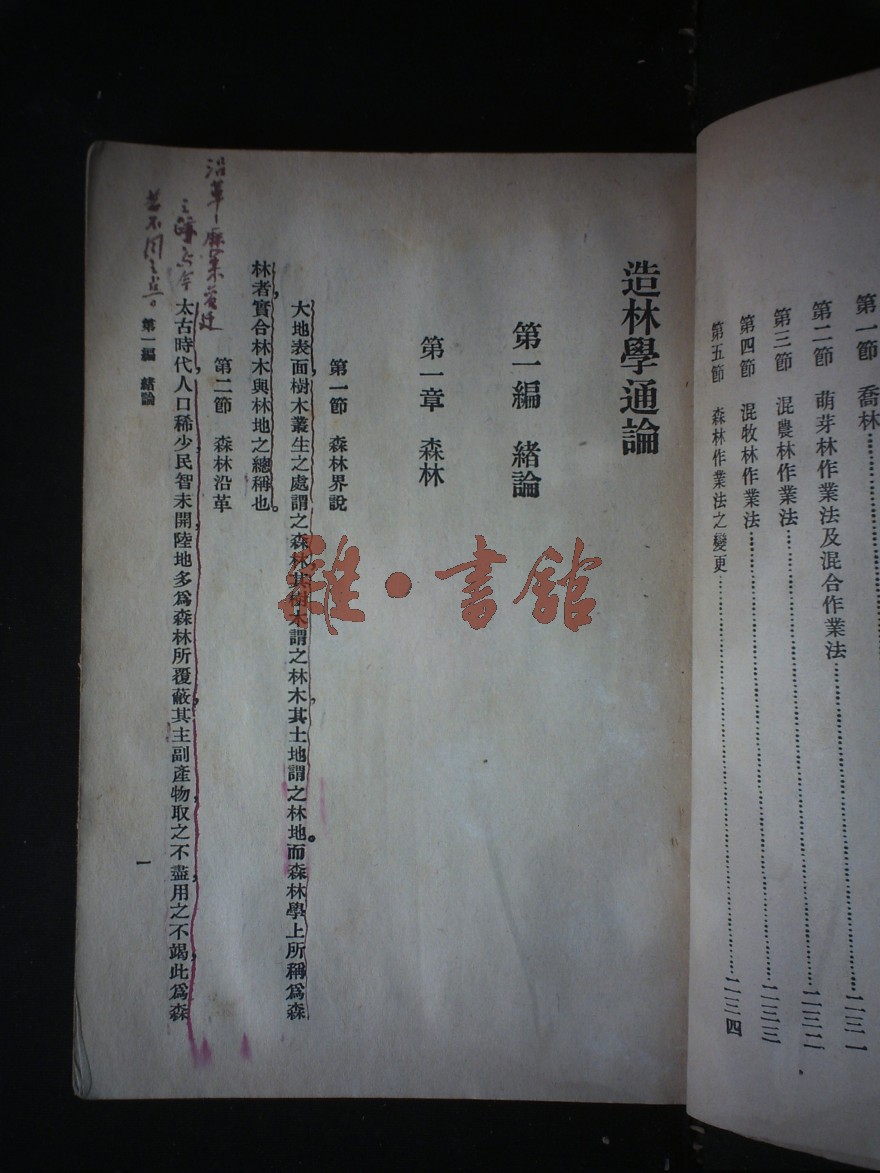 第一節　喬林………………二三一
第二節　萌芽林作業法及混合作業法………………二三二
第三節　混農林作業法………………二三三
第四節　混牧林作業法………………二三三
第五節　森林作業法之變更………………二三四
造林學通論
第一編　緒論
第一章　森林
第一節　森林界說
大地表面樹木叢生之處謂之森林其樹木謂之林木其土地謂之林地。而森林學上所稱爲森
林者實合林木與林地之總稱也。
第二節　森林沿革
太古時代人口稀少民智未開陸地多爲森林所覆蔽其主副產物取之不盡用之不竭此爲森
第一編　緒論
一
沿革
雜·書館